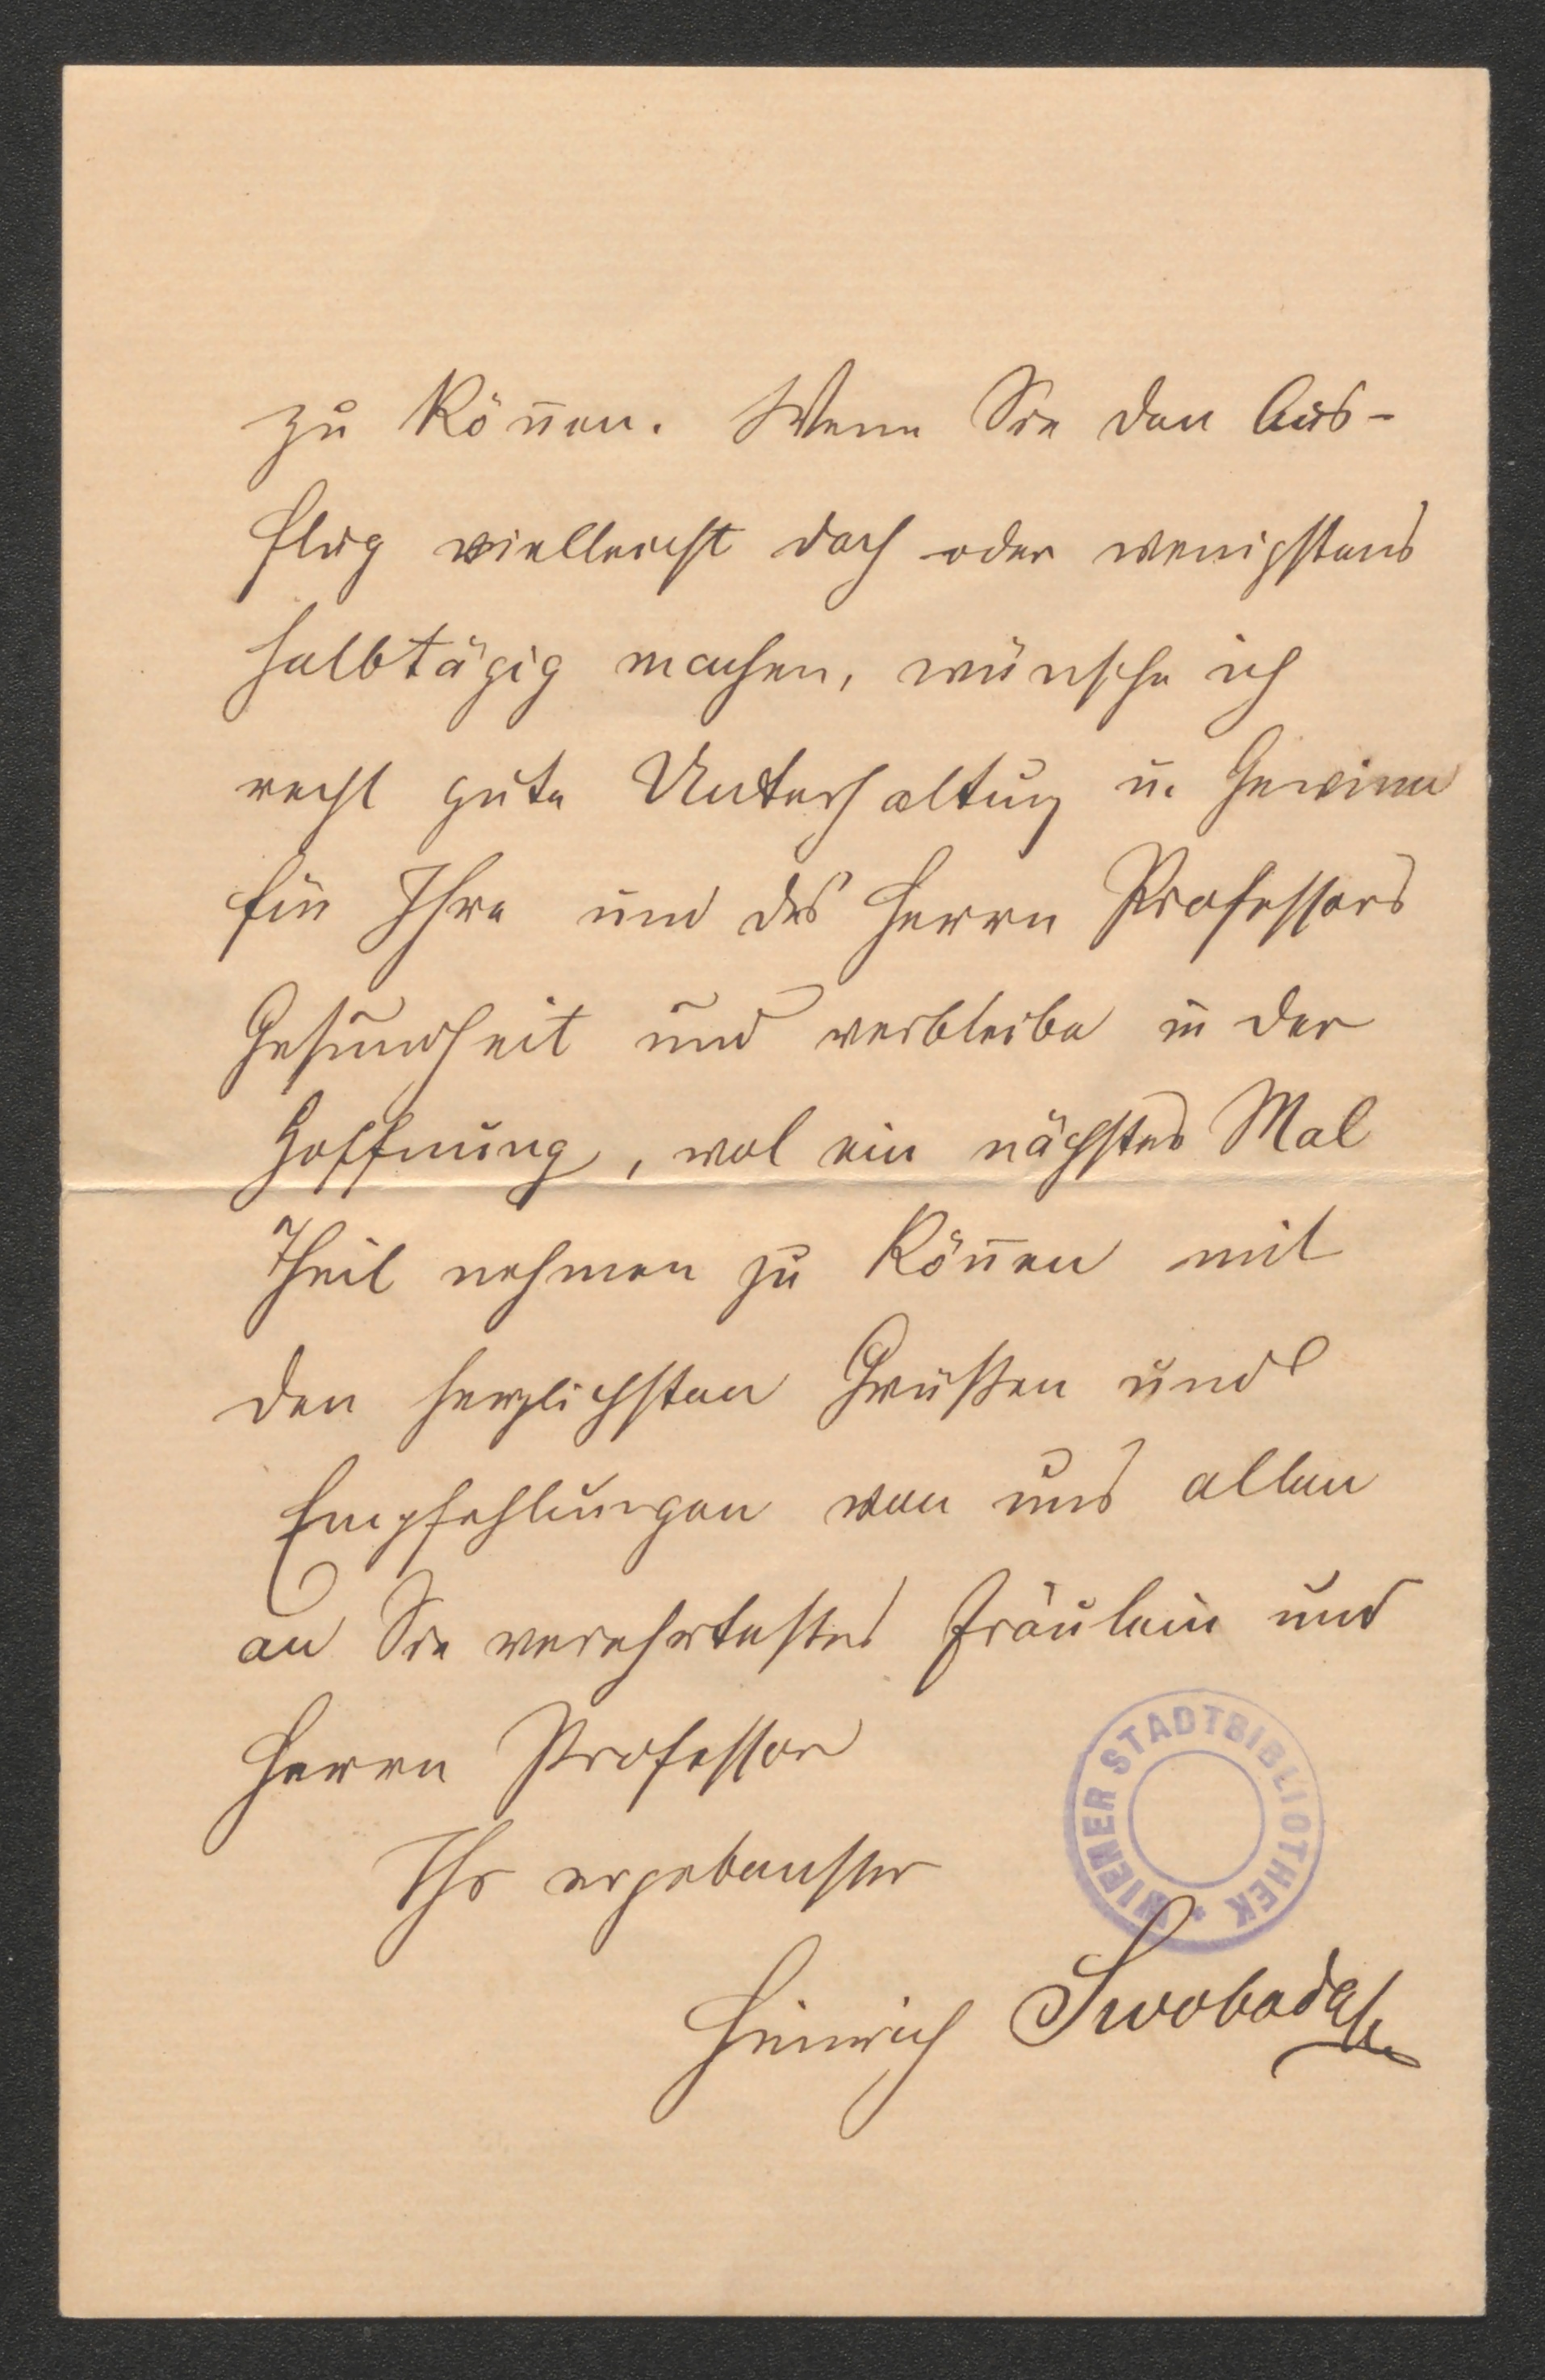 zu kön̄en. Wenn Sie den Aus-
flug vielleicht doch oder wenigstens
halbtägig machen, wünsche ich
recht gute Unterhaltung u. Gewinn
für Ihre und des Herrn Professors
Gesundheit und verbleibe in der
Hoffnung, wol ein nächstes Mal
Theil nehmen zu kön̄en mit
den herzlichsten Grüßen und
Empfehlungen von uns allen
an Sie verehrtestes Fräulein und
Herrn Professor
Ihr ergebenster
Heinrich Swoboda
WIENER STADTBIBLIOTHEK *